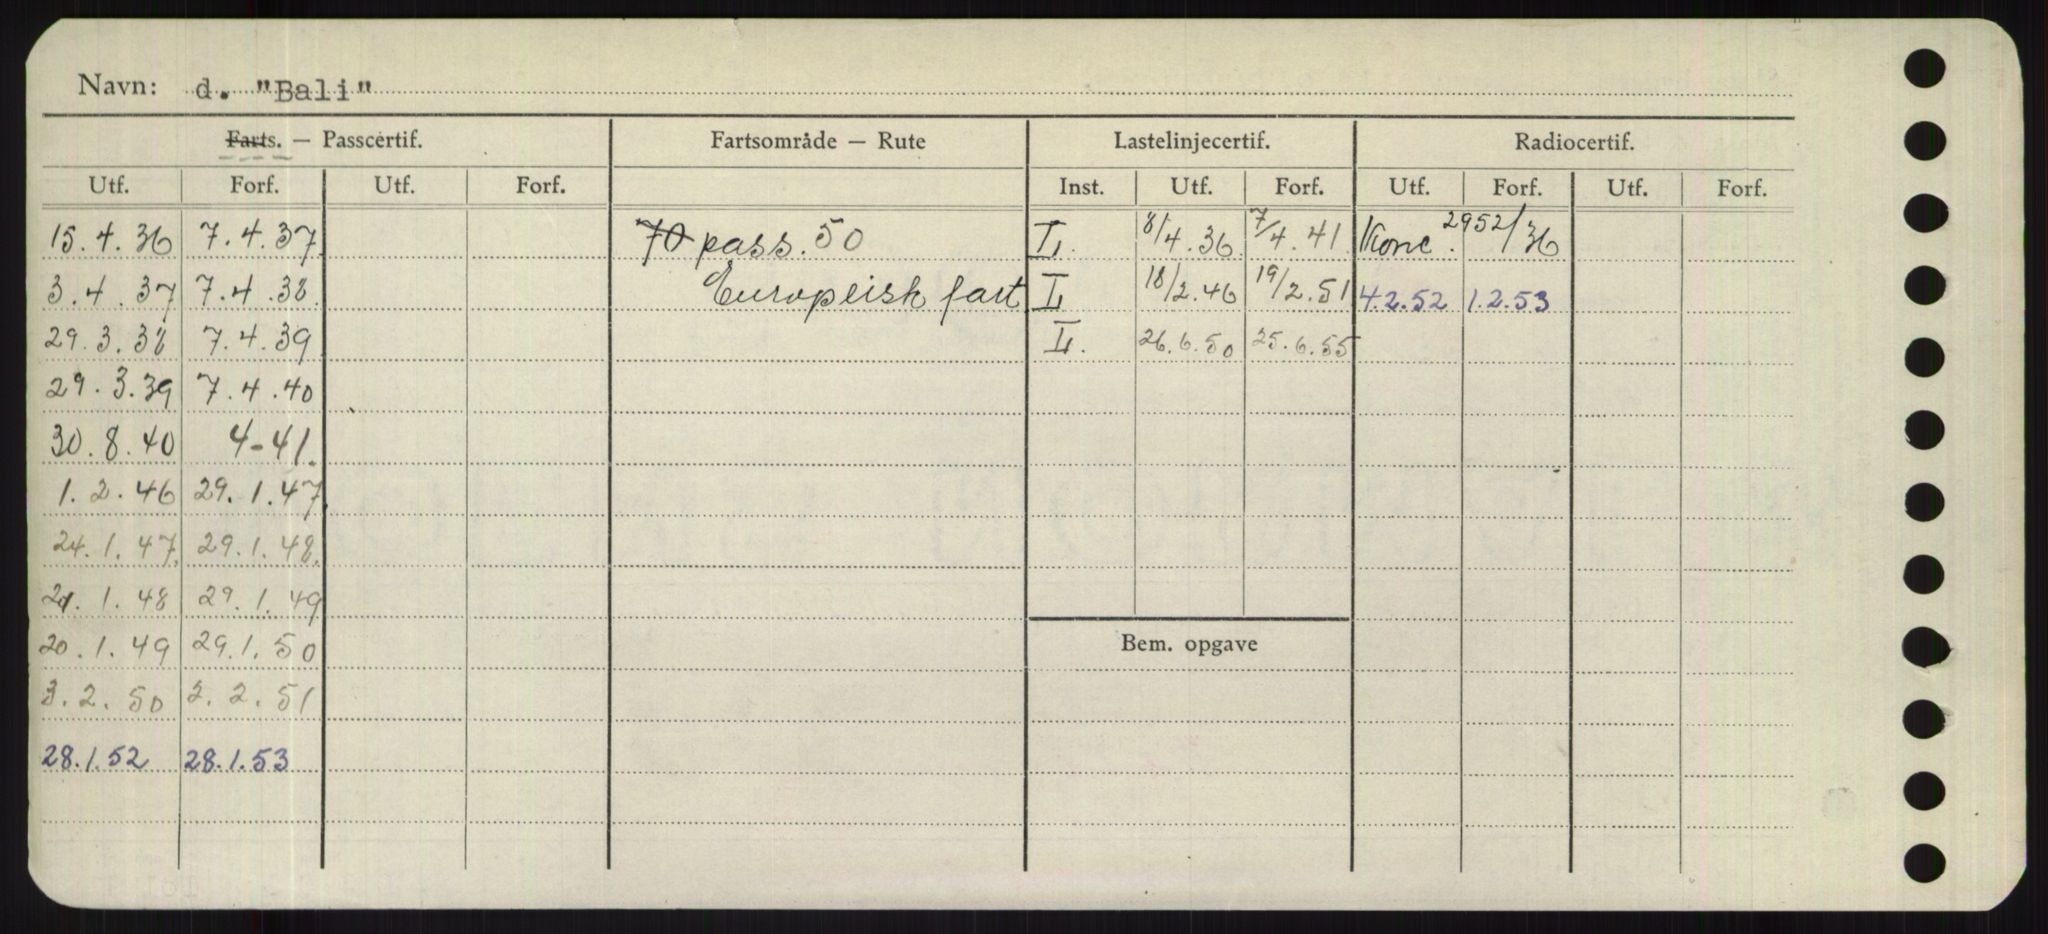 Navn: d. "Bali"
Farts. — Passcertif. Fartsområde — Rute Lastelinjecertif. Radiocertif.
Utf. Forf. Utf. Forf. Inst. Utf. Forf. Utf. Forf. Utf. Forf.
15.4.36 7.4.37 70 pass. 50 L. 8/4.36 7/4.41 Konc. 2952/36
3.4.37 7.4.38. Europeisk fart L 18/2.46 19/2.51 4.2.52 1.2.53
29.3.38 7.4.39 L. 26.6.50 25.6.55
29.3.39 7.4.40
30.8.40 4-41.
1.2.46 29.1.47
24.1.47. 29.1.48.
21.1.48 29.1.49
20.1.49 29.1.50
Bem. opgave
3.2.50 2.2.51
28.1.52 28.1.53